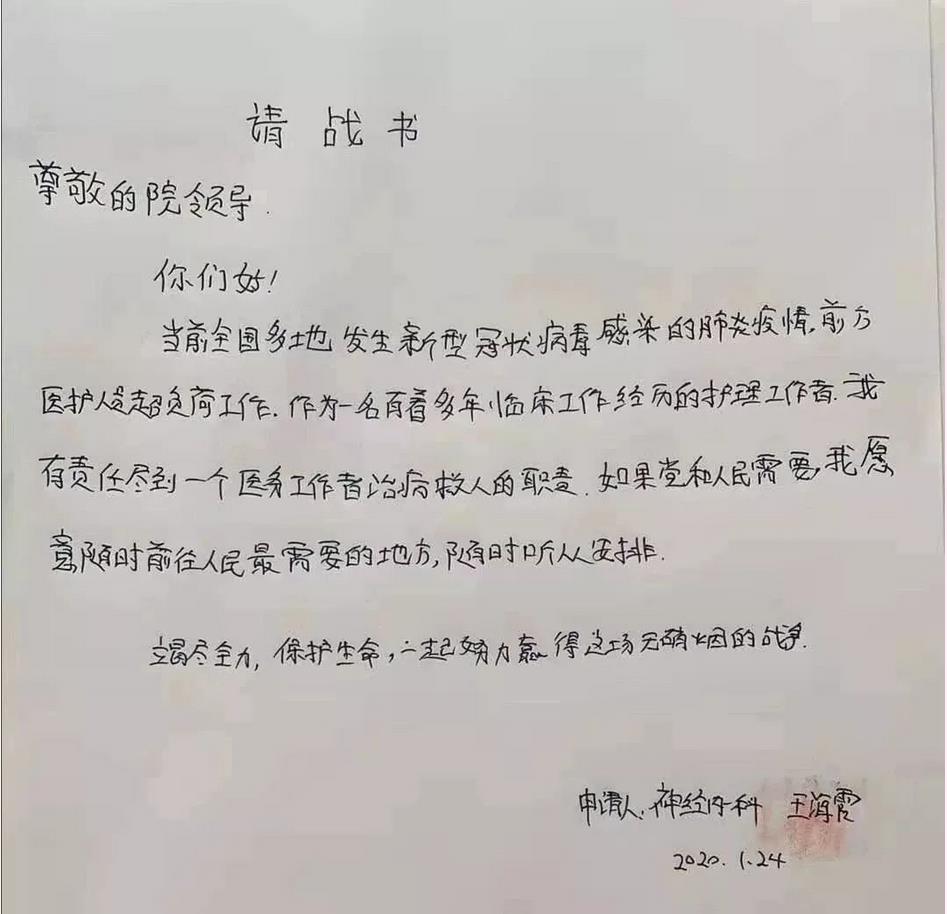 请战书
尊敬的院领导.
你们好!
当前全国多地发生新型冠状病毒感染的肺炎疫情,前方
医护人员超负荷工作.作为一名有着多年临床工作经历的护理工作者.我
有责任尽到一个医务工作者治病救人的职责.如果党和人民需要,我愿
意随时前往人民最需要的地方,随时听从安排.
竭尽全力,保护生命,一起努力赢得这场无硝烟的战争.
申请人:神经内科 王海霞
2020.1.24